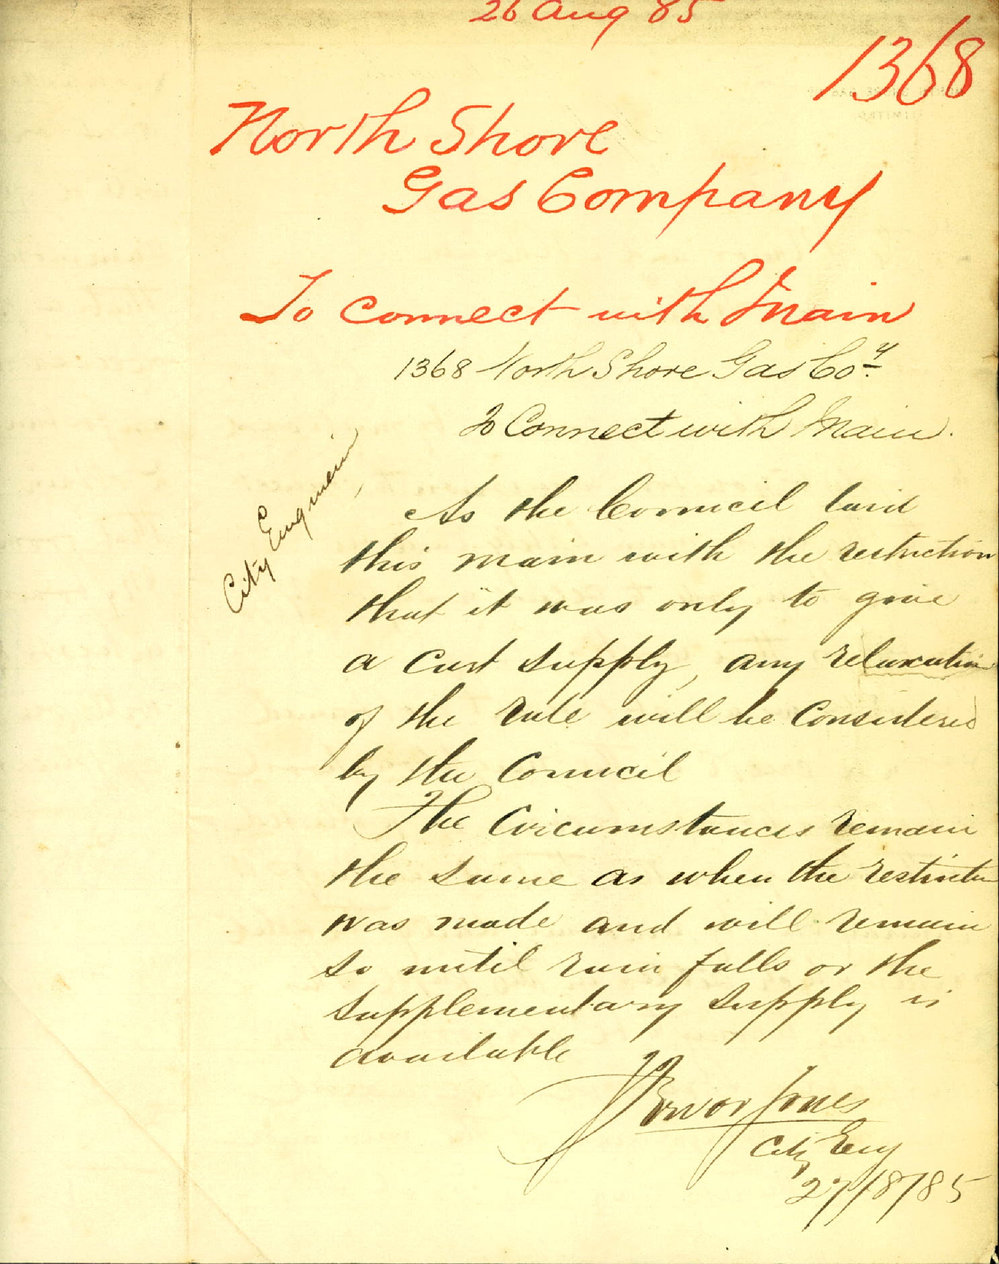 26 Aug 85
1368
North Shore
Gas Company
To Connect with Main
1368 North Shore Gas Coy.
To Connect with Main.
City Engineer
As the Council laid
this main with the restriction
that it was only to give
a cart supply, any relaxation
of the rule will be Considered
by the Council
The Circumstances remain
the same as when the restriction
was made and will remain
so until rain falls or the
supplementary supply is
available
Trevor Jones
City Eng
27/8/85